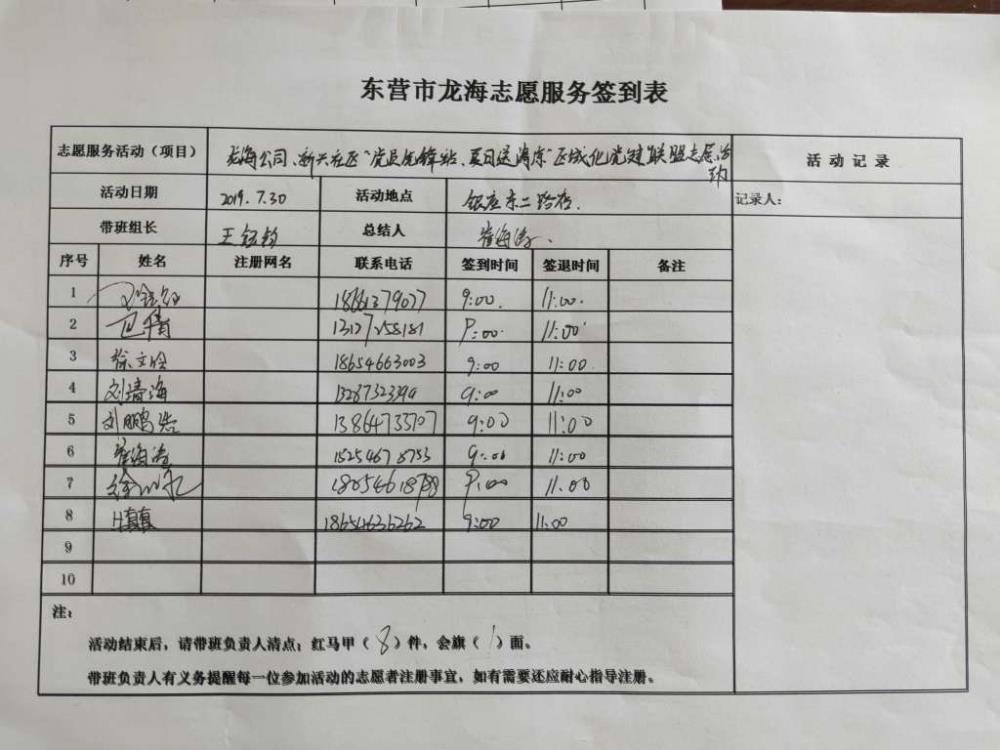 东营市龙海志愿服务签到表
志愿服务活动（项目） 龙海公司、新兴社区“党员先锋站、夏日送清凉”区域化党建联盟志愿活动 活动记录
活动日期 2019.7.30 活动地点 银座东二路店. 记录人：
带班组长 王钰钧 总结人 崔海涛.
序号 姓名 注册网名 联系电话 签到时间 签退时间 备注
1 18661379077 9:00. 11:00.
2 13127258181 9:00. 11:00
3 徐文 18654663003 9:00 11:00.
4 刘靖海 9:00 11:00
5 刘鹏浩 13864735707 9:00 11:00
6 崔海涛 15254678753 9:00 11:00
7 9:00 11:00
8 18654626262 9:00 11:00
9
10
注：
活动结束后，请带班负责人清点：红马甲（8）件，会旗（1）面。
带班负责人有义务提醒每一位参加活动的志愿者注册事宜，如有需要还应耐心指导注册。